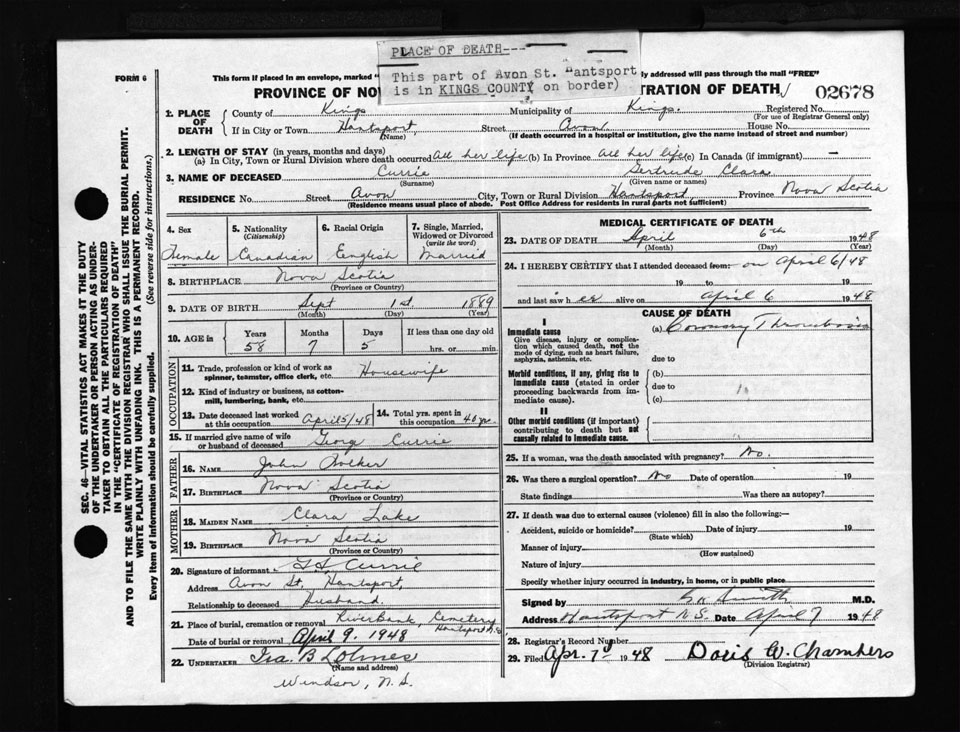 PLACE OF DEATH---
This part of Avon St. Hantsport
is in KINGS COUNTY on border)
FORM 6
This form if placed in an envelope, marked "
ly addressed will pass through the mail "FREE"
PROVINCE OF NO
TRATION OF DEATH
02678
1. PLACE OF DEATH
County of Kings Municipality of Kings. Registered No.
(For use of Registrar General only)
If in City or Town Hantsport, Street Avon House No.
(Name) (If death occurred in a hospital or institution, give the name instead of street and number)
2. LENGTH OF STAY (in years, months and days)
(a) In City, Town or Rural Division where death occurred all her life (b) In Province all her life (c) In Canada (if immigrant) —
3. NAME OF DECEASED Currie Gertrude Clara
(Surname) (Given name or names)
RESIDENCE No. Street Avon City, Town or Rural Division Hantsport Province Nova Scotia
(Residence means usual place of abode. Post Office Address for residents in rural parts not sufficient)
4. Sex
Female
5. Nationality
(Citizenship)
Canadian
6. Racial Origin
English
7. Single, Married, Widowed or Divorced
(write the word)
Married
8. BIRTHPLACE Nova Scotia
(Province or Country)
9. DATE OF BIRTH Sept 1st 1889
(Month) (Day) (Year)
10. AGE in
Years Months Days If less than one day old
58 7 5 hrs. or min.
OCCUPATION
11. Trade, profession or kind of work as spinner, teamster, office clerk, etc. Housewife
12. Kind of industry or business, as cotton-mill, lumbering, bank, etc.
13. Date deceased last worked at this occupation April 5/48
14. Total yrs. spent in this occupation 40 yrs.
15. If married give name of wife or husband of deceased Currie
FATHER
16. NAME John
17. BIRTHPLACE Nova Scotia
(Province or Country)
MOTHER
18. MAIDEN NAME Clara Lake
19. BIRTHPLACE Nova Scotia
(Province or Country)
20. Signature of informant Currie
Address Avon St, Hantsport,
Relationship to deceased Husband.
21. Place of burial, cremation or removal RiverBank, Cemetery
Hantsport N.S
Date of burial or removal April 9. 1948
22. UNDERTAKER Ira. B Lohnes
(Name and address)
Windsor, N.S.
MEDICAL CERTIFICATE OF DEATH
23. DATE OF DEATH April 6th 1948
(Month) (Day) (Year)
24. I HEREBY CERTIFY that I attended deceased from: on April 6/48
19 to 19
and last saw h er alive on April 6 1948
CAUSE OF DEATH
I
Immediate cause
Give disease, injury or complication which caused death, not the mode of dying, such as heart failure, asphyxia, asthenia, etc.
(a) Coronary Thrombosis
due to
Morbid conditions, if any, giving rise to immediate cause (stated in order proceeding backwards from immediate cause).
(b)
due to
(c)
II
Other morbid conditions (if important) contributing to death but not causally related to immediate cause.
25. If a woman, was the death associated with pregnancy? No.
26. Was there a surgical operation? No Date of operation 19
State findings Was there an autopsy?
27. If death was due to external causes (violence) fill in also the following:—
Accident, suicide or homicide? Date of injury 19
(State which)
Manner of injury
(How sustained)
Nature of injury
Specify whether injury occurred in industry, in home, or in public place
Signed by Smith M.D.
Address Hantsport N.S. Date April 7 1948
28. Registrar's Record Number
29. Filed Apr. 7 1948 Doris W. Chambers
(Division Registrar)
SEC. 46—VITAL STATISTICS ACT MAKES IT THE DUTY
OF THE UNDERTAKER OR PERSON ACTING AS UNDER-
TAKER TO OBTAIN ALL THE PARTICULARS REQUIRED
IN THE "CERTIFICATE OF REGISTRATION OF DEATH"
AND TO FILE THE SAME WITH THE DIVISION REGISTRAR WHO SHALL ISSUE THE BURIAL PERMIT.
WRITE PLAINLY WITH UNFADING INK. THIS IS A PERMANENT RECORD.
Every item of information should be carefully supplied. (See reverse side for instructions.)